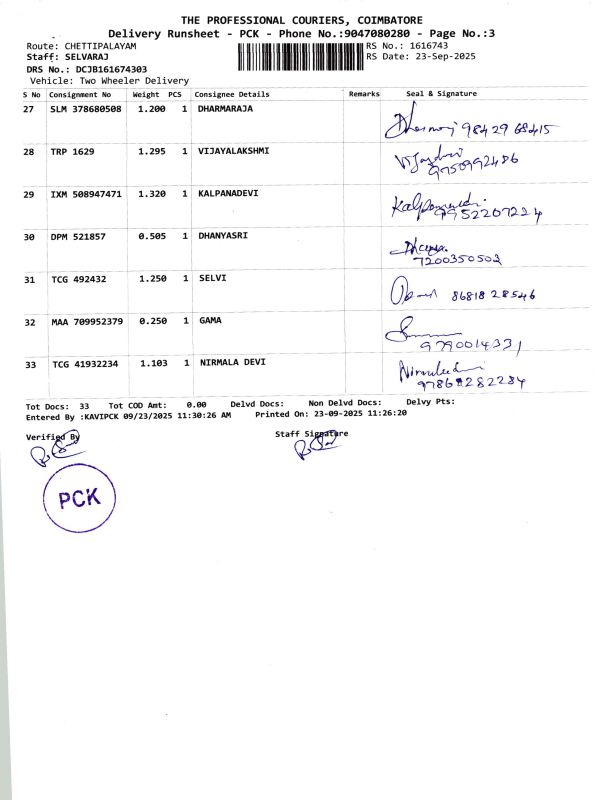 THE PROFESSIONAL COURIERS, COIMBATORE
Delivery Runsheet - PCK - Phone No.:9047080280 - Page No.:3
Route: CHETTIPALAYAM RS No.: 1616743
Staff: SELVARAJ RS Date: 23-Sep-2025
DRS No.: DCJB161674303
Vehicle: Two Wheeler Delivery
S No Consignment No Weight PCS Consignee Details Remarks Seal & Signature
27 SLM 378680508 1.200 1 DHARMARAJA
98429 68415
28 TRP 1629 1.295 1 VIJAYALAKSHMI
9750992486
29 IXM 508947471 1.320 1 KALPANADEVI
9952207224
30 DPM 521857 0.505 1 DHANYASRI
7200350502
31 TCG 492432 1.250 1 SELVI
86818 28546
32 MAA 709952379 0.250 1 GAMA
9790014331
33 TCG 41932234 1.103 1 NIRMALA DEVI
Tot Docs: 33 Tot COD Amt: 0.00 Delvd Docs: Non Delvd Docs: Delvy Pts:
Entered By :KAVIPCK 09/23/2025 11:30:26 AM Printed On: 23-09-2025 11:26:20
Verified By Staff Signature
PCK